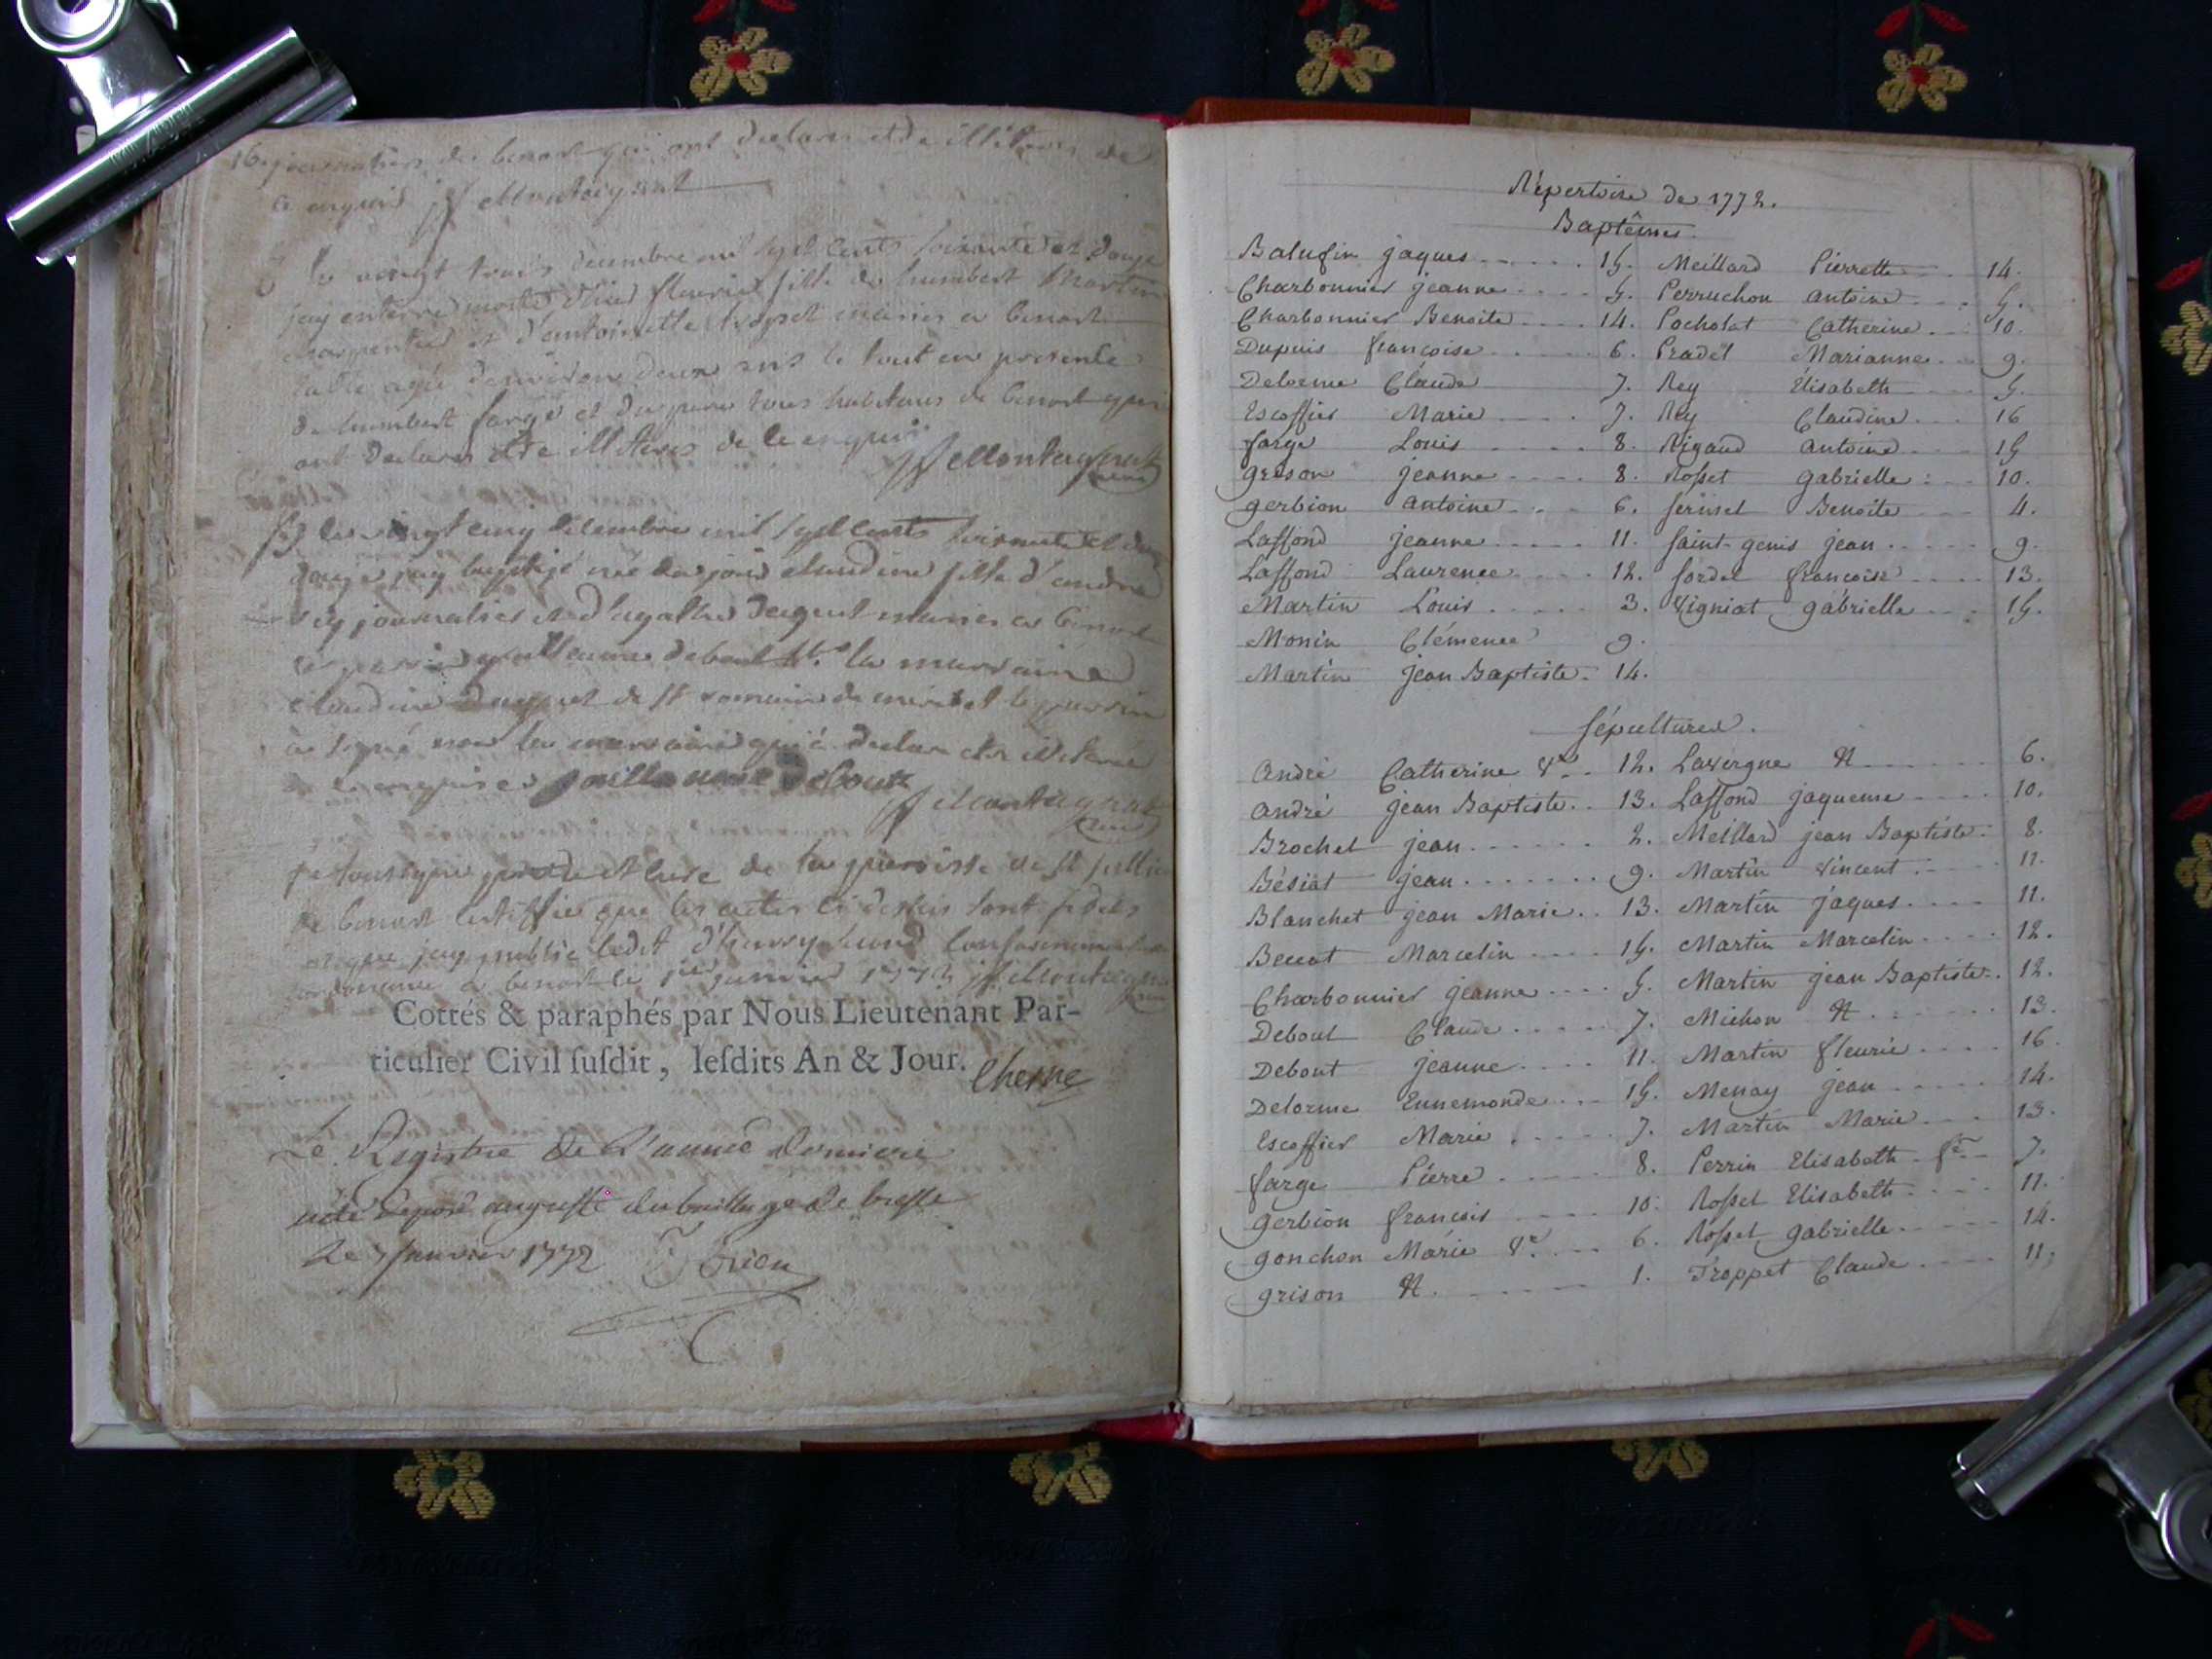 16 journaliers de benost qui ont declarés etre illiteres de
ce enquis jf Montagnat
le vingt trois decembre mil sept cents soixante et douze
jay enterré morte d'hier fleurie fille de humbert Martin
charpentier et d'antoinette troppet mariés a benost
agée d'environ deux ans le tout en presence
de humbert farge et du pere tous habitans de benost qui
ont declarés etre illiteres de ce enquis
jf Montagnat
curé
le vingt cinq decembre mil sept cents soixante et
douze jay baptisé née du jour claudine fille d'andré
rey journalier et d'agathe mariés a benost
le parrain guillaume debout la marraine
claudine de st romain de miribel le parrain
a signé non la marraine qui a declaré etre illiterée
de ce enquise guillaume debout
jf Montagnat
curé
je soussigné pretre et curé de la paroisse de st jullien
de benost certiffie que les actes ci dessus sont fideles
et que jay publié ledit d'henry second conformement
a benost le 1er janvier jf Montagnat
Cottés & paraphés par Nous Lieutenant Par-
ticulier Civil ſuſdit, leſdits An & Jour.
Cherne
Le Registre de L'année derniere
a été deposé au greffe du bailliage de bresse
Le 7 Janvier 1772
Répertoire de 1772.
Baptêmes.
Balufin jaques 15. Meillard Pierrette 14.
Charbonnier jeanne 5. Perruchon antoine 5.
Charbonnier Benoite 14. Pocholat Catherine 10.
Dupuis françoise 6. Pradel Marianne 9.
Delorme Claude 7. Rey Élisabeth 5.
Escoffier Marie 7. Rey Claudine 16
farge Louis 8. Rigaud antoine 15
grison jeanne 8. Rosset gabrielle 10.
gerbion antoine 6. Benoite 4.
Laffond jeanne 11. saint-genis jean 9.
Laffond Laurence 12. sordel françoise 13.
Martin Louis 3. Vigniat gabrielle 15.
Monin Clémence 9.
Martin jean Baptiste 14.
sépultures.
andré Catherine Vve 12. Lavergne N 6.
andré jean Baptiste 13. Laffond jaqueme 10.
Brochet jean 2. Meillard jean Baptiste 8.
Bésiat jean 9. Martin Vincent 11.
Blanchet jean Marie 13. Martin jaques 11.
Beccat Marcelin 15. Martin Marcelin 12.
Charbonnier jeanne 5. Martin jean Baptiste 12.
Debout Claude 7. Michon N 13.
Debout jeanne 11. Martin fleurie 16
Delorme Ennemonde 15. Menay jean 14.
Escoffier Marie 7. Martin Marie 13.
farge Pierre 8. Perrin Elisabeth fe 7.
gerbion françois 10. Rosset Elisabeth 11.
gonchon Marie Ve 6. Rosset gabrielle 14.
grison N. 1. Troppet Claude 11.